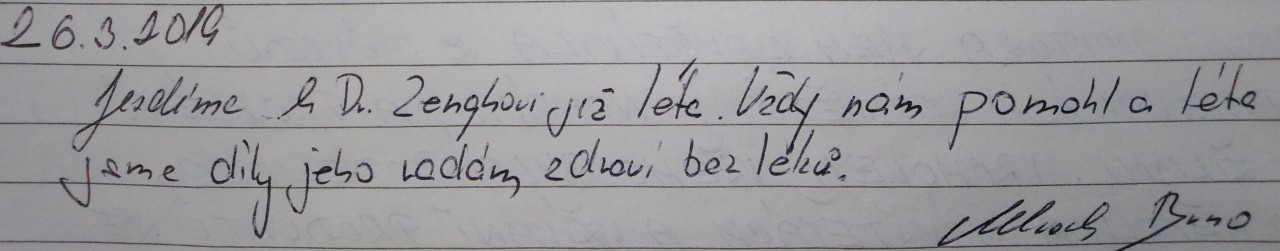 26.3.2019
Jezdíme k Dr. Zenghovi již léta. Vždy nám pomohl a léta
jsme díky jeho radám, zdraví bez léků.
Brno